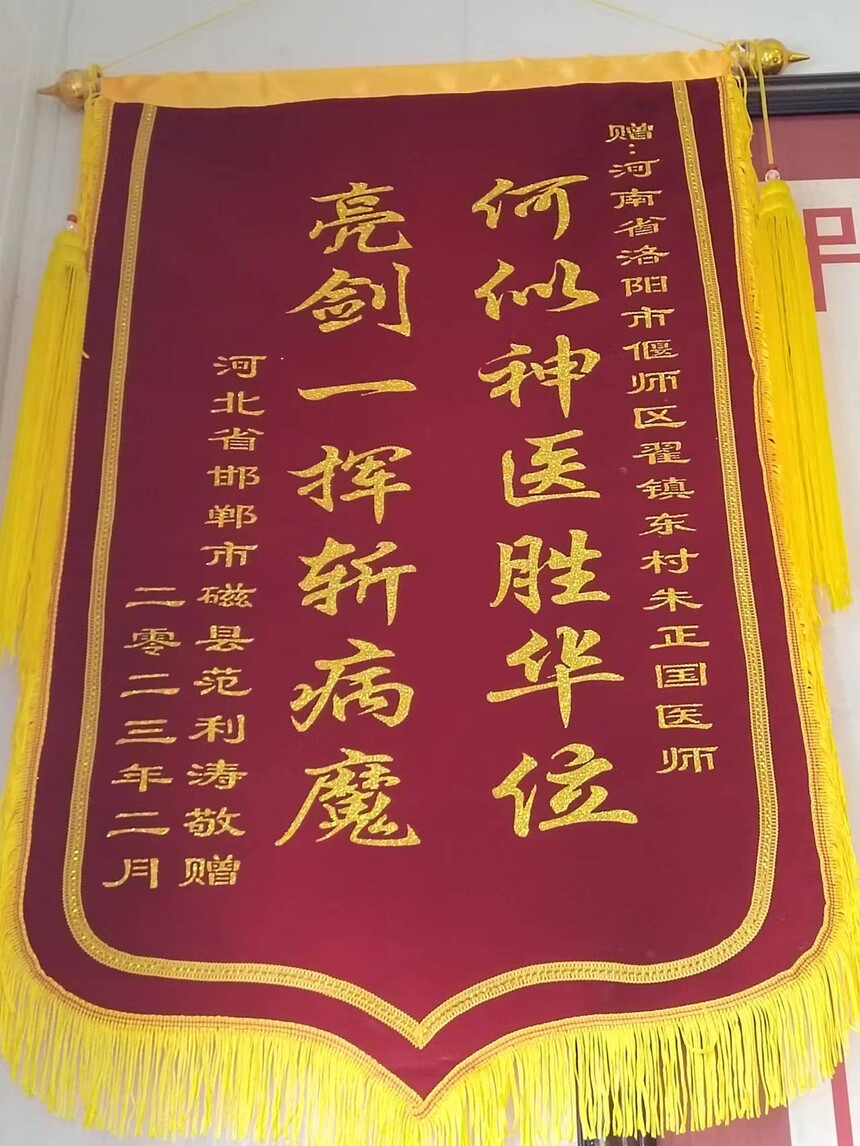 赠:河南省洛阳市偃师区翟镇东村朱正国医师
何似神医胜华位
亮剑一挥斩病魔
河北省邯郸市磁县范利涛敬赠
二零二三年二月